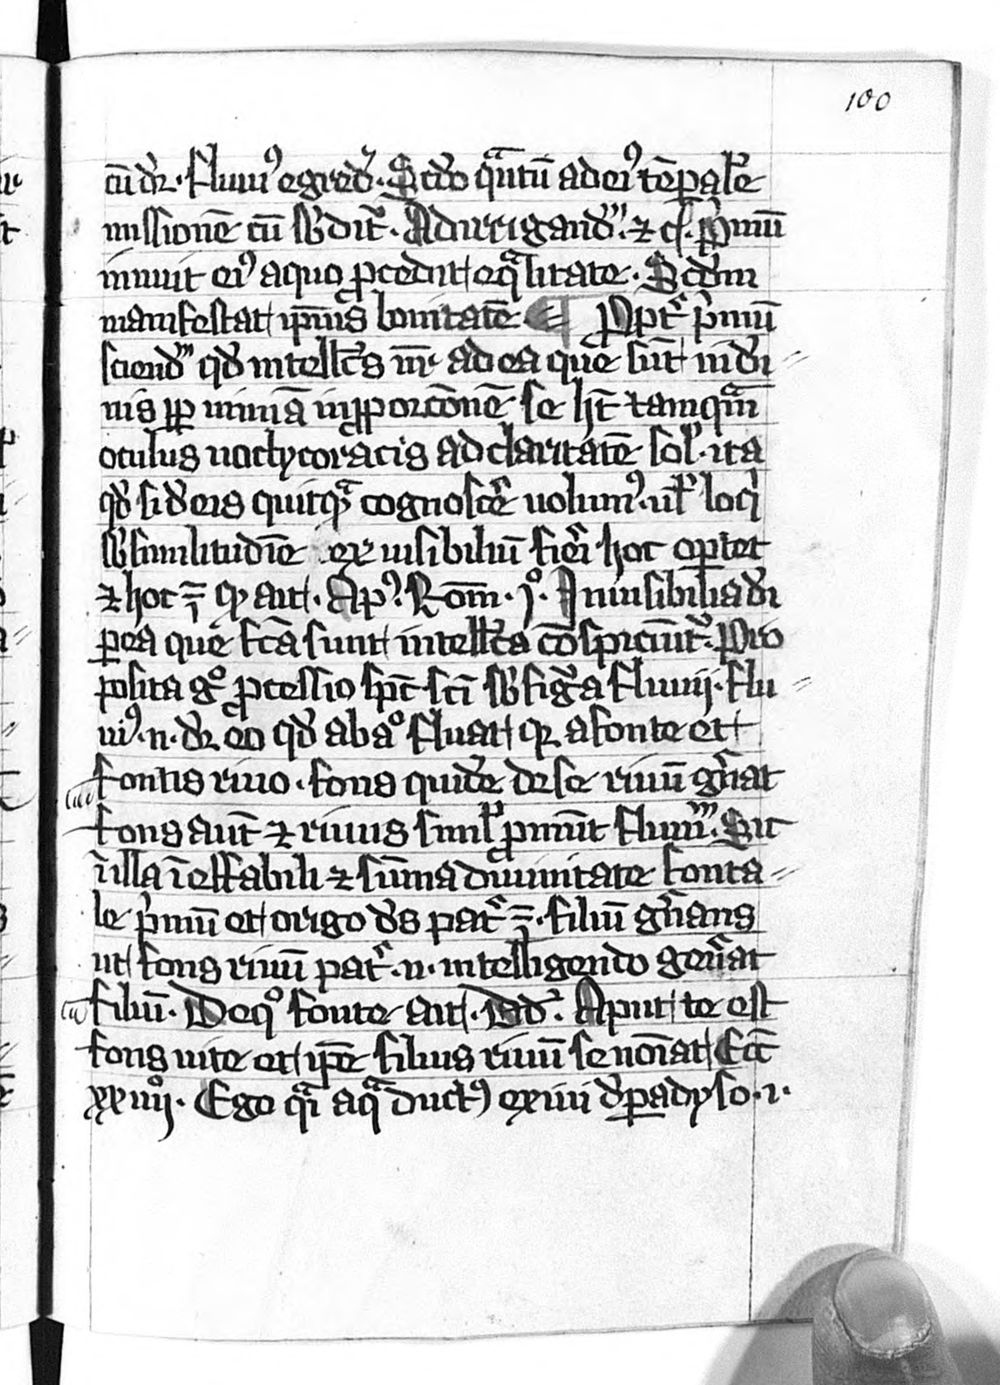 100
cū dr̄. Fluuiꝰ egredr̄. Scd̓o qͣntū ad eiꝰ tēpalē
missionē cū sb̓dit̓. Ad irrigandū. ⁊ c̄. Pͥmū
innuit eiꝰ a quo ꝓcedit eqͣlitate. Scd̓m
manifestat ipsius bonitatē ¶ Ppt̓ pͥmū
sciendū qd̓ intellc̄s nr̄ ad ea que sūt in di
uis ꝑ nimiā inꝓporc̄onē se hꝫ tamqͣm
oculus noctycoracis ad claritatē sol̓. ita
qd̓ si de eis quicqͣ cognosc̓e uolumꝰ. ul̓ loqͥ
sb̓ similitudīe ex uisibiliū fi̓ei hoc oꝑtet
⁊ hoc ē̄ qd̓ ait. Apꝰ. Rom̄. iͦ. Inuisibilia di
ꝑ ea que fc̄a sunt intellc̄a cōspiciūt̓. Pro
posita gͦ ꝓcessio sp̄c sc̄i sb̓ figͣa fluuii. Flu
uiꝰ. n. dr̄ eo qd̓ ab aͦ fluat qꝛ a fonte et
fontis riuo. fons quidē de se riuū gn̄at
fons aūt ⁊ riuus simil̓ ꝓmūt fluuiū. Sic
ī illa īeffabili ⁊ sūma diuinitate fonta
le pͥmū et origo ds̄ pat̓ ē̄. filiū gn̄ans
ut fons riuū pat̓. n. intelligendo gen̄at
filiū. De qͦ fonte ait. Dd̓. Aput te est
fons uite et ip̄e filius riuū se noīat Ecc̄
xxiiiiͦ. Ego qͣi aqͣ ductꝰ exiui d̓ paradyso. i.